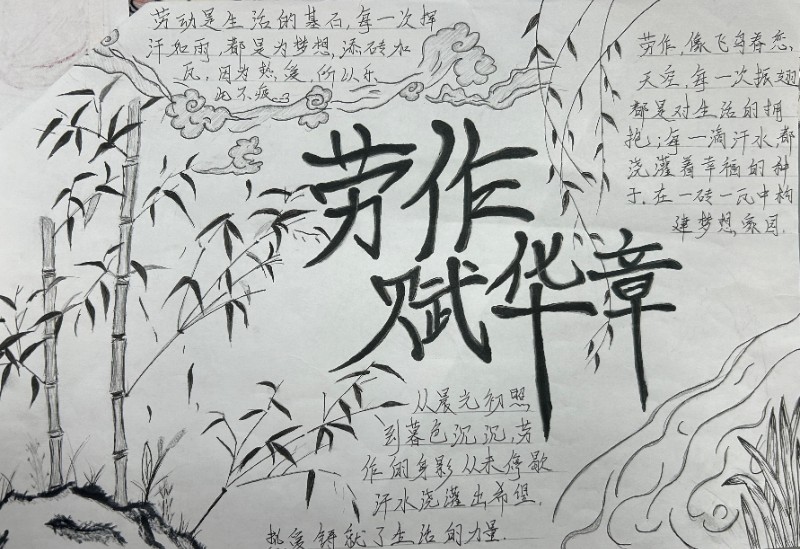 劳动是生活的基石,每一次挥
汗如雨,都是为梦想,添砖加
瓦,因为热爱,所以乐
此不疲。
劳作,像飞鸟眷恋,
天空,每一次振翅
都是对生活的拥
抱;每一滴汗水都
浇灌着幸福的种
子,在一砖一瓦中构
建梦想家园.
劳作
赋华章
从晨光初照
到暮色沉沉,劳
作的身影从未停歇
汗水浇灌出希望.
热爱铸就了生活的力量.